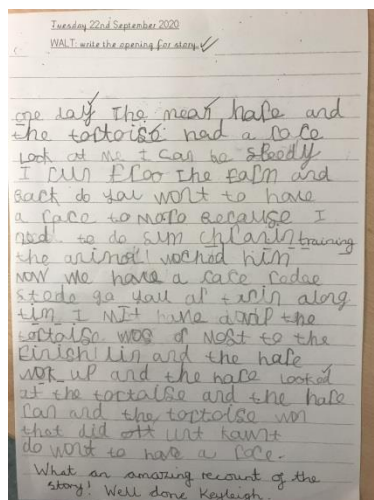 Tuesday 22nd September 2020
WALT: write the opening for story
one day The mean hare and
the tortoise had a race
Look at me I can be speedy
I run froo the farm and
Back do you wont to have
a race to moro Because I
need to do sum training
the animal woched him
now we have a race
go you ar along
tim I mit have a the
tortoise was or most to the
finish lin and the hare
wok up and the hare looked
at the tortoise and the hare
ran and the tortoise won
that did
do wont to have a race.
What an amazing recount of the
story! Well done Keyleigh.